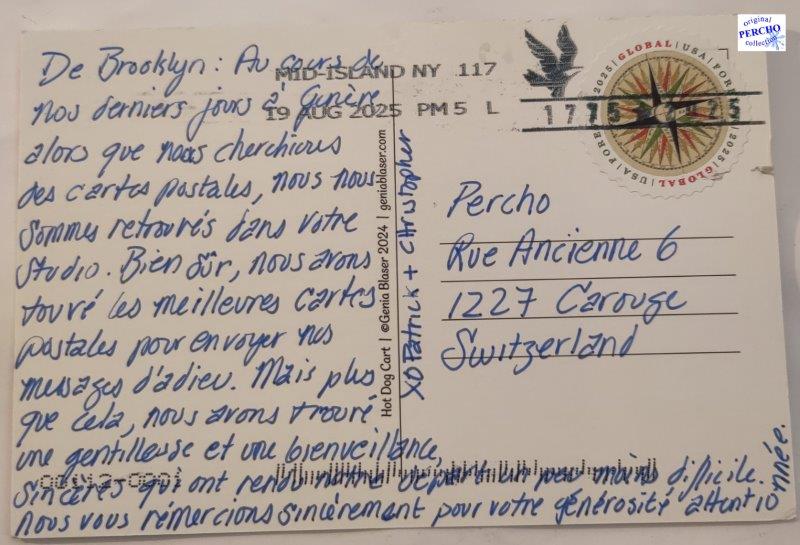 original
PERCHO
collection
GLOBAL | USA | FOREVER | 2025 | GLOBAL | USA | FOREVER | 2025
MID-ISLAND NY 117
19 AUG 2025 PM 5 L
1775 2025
De Brooklyn: Au cours de
nos derniers jours à Genève
alors que nous cherchions
des cartes postales, nous nous
sommes retrouvés dans votre
studio. Bien sûr, nous avons
trouvé les meilleures cartes
postales pour envoyer nos
messages d'adieu. Mais plus
que cela, nous avons trouvé
une gentillesse et une bienveillance,
sincères qui ont rendu notre départ un peu moins difficile.
nous vous rémercions sincèrement pour votre générosité attentionnée.
XO Patrick + Christopher
Hot Dog Cart | ©Genia Blaser 2024 | geniablaser.com
Percho
Rue Ancienne 6
1227 Carouge
Switzerland